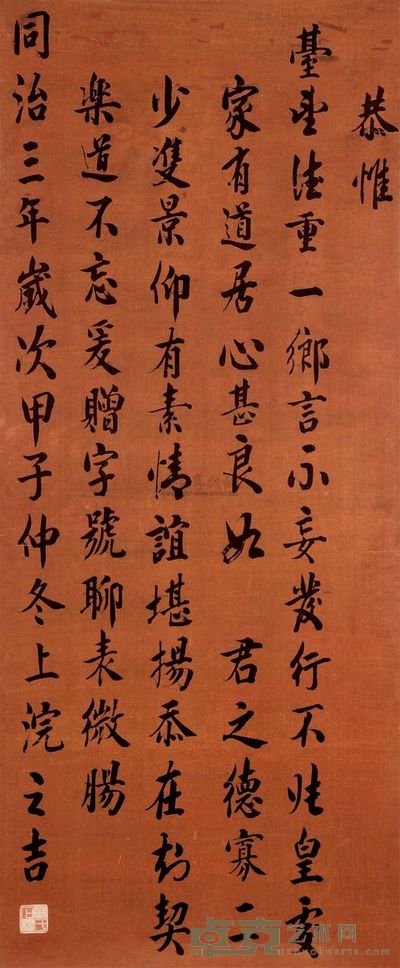 恭惟
臺望重一鄉言不妄發行不皇齊
家有道居心甚良如 君之德寡二
少雙景仰有素情誼堪揚忝在契
樂道不忘爰贈字號聊表微腸
同治三年歲次甲子仲冬上浣之吉
卓克艺术网